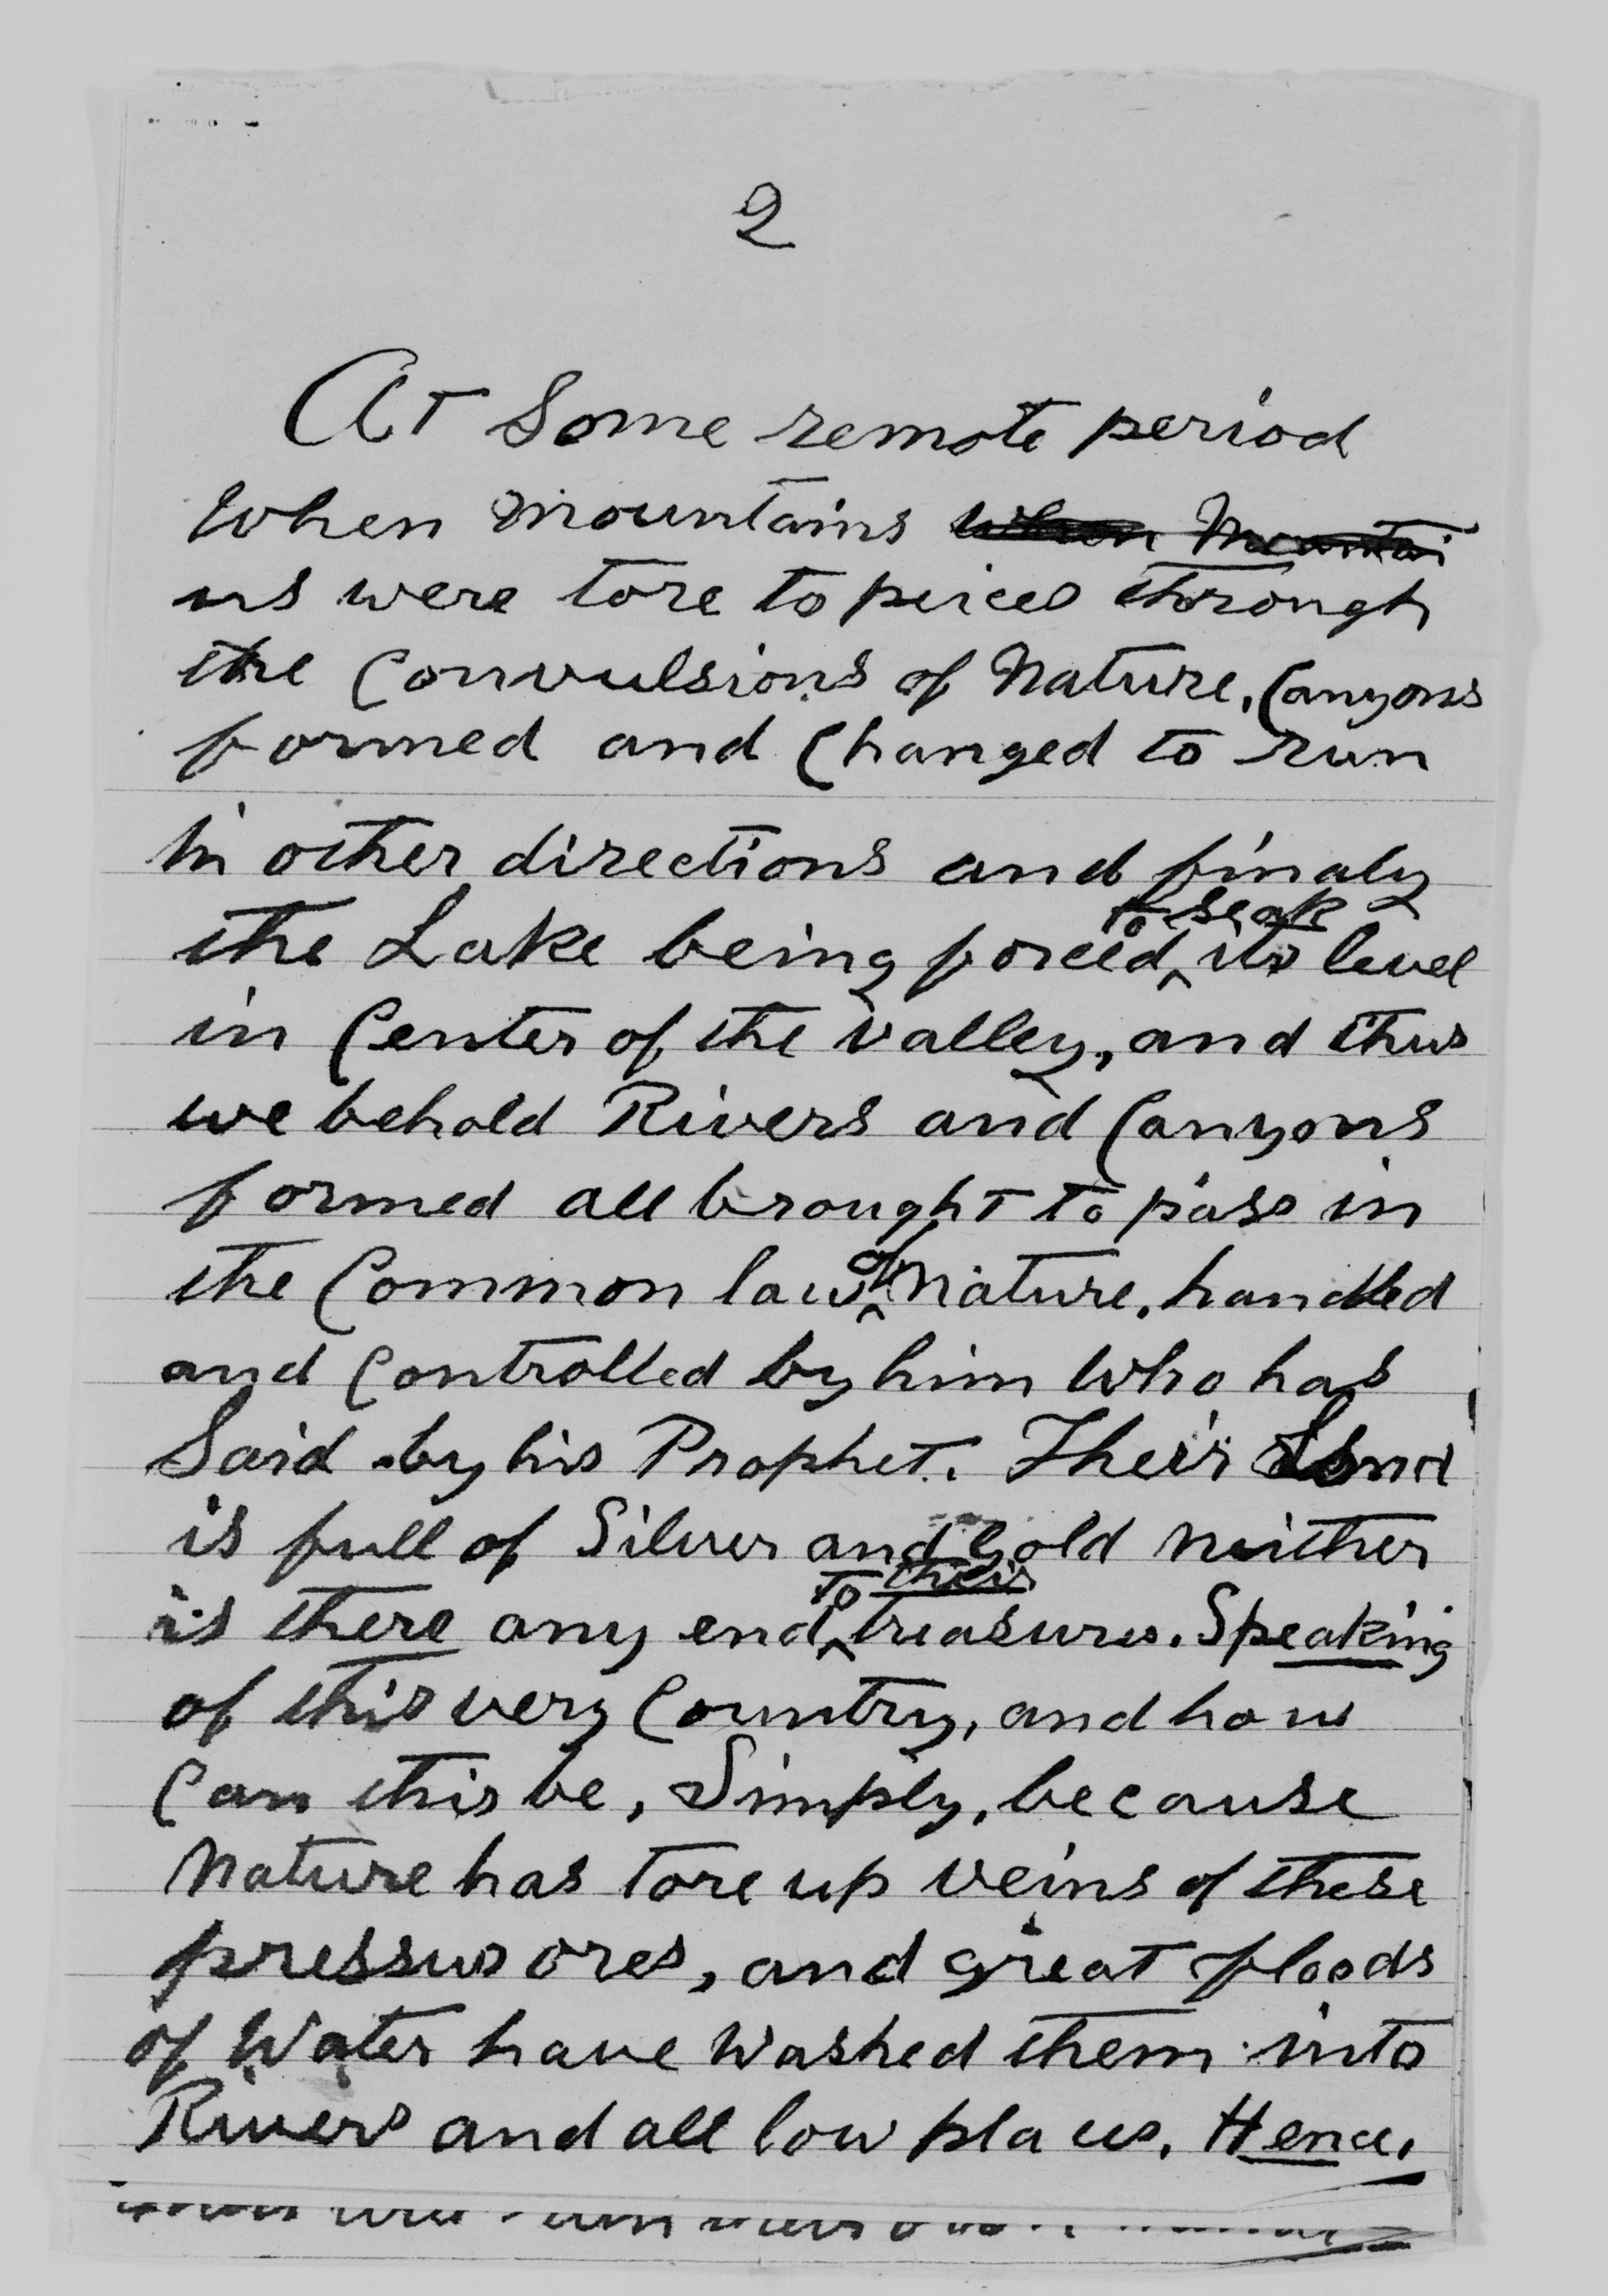 2
At Some remote period
when mountains when Mountai
ns were tore to peices through
the Convulsions of Nature, Canyons
formed and Changed to run
in other directions and finaly
the Lake being forced to seak its level
in Center of the valley, and thus
we behold Rivers and Canyons
formed all brought to pass in
the Common law of Nature, handled
and Controlled by him who has
Said by his Prophet. Their Land
is full of Silver and Gold neither
is there any end to their treasures. Speaking
of this very Country, and how
Can this be, Simply, because
Nature has tore up veins of these
pressus ores, and great floods
of Water have Washed them into
Rivers and all low places, Hence,